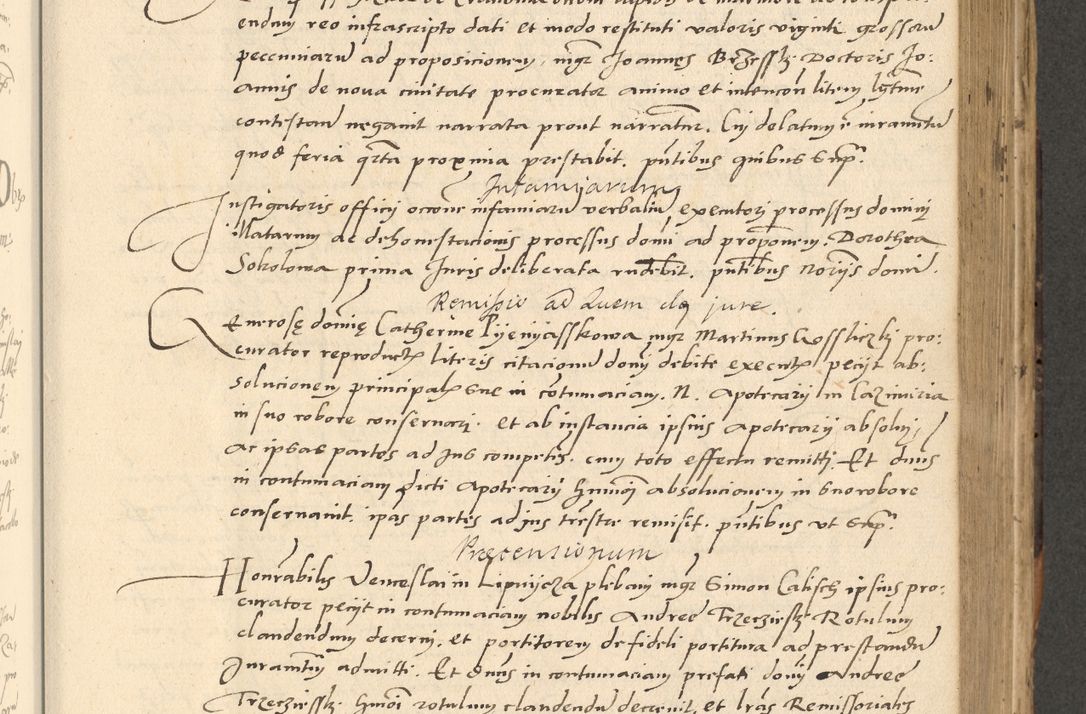 endum reo infrascripto dati et modo restituti valoris viginti grossorũ
peccuniarũ ad proposicionem, mgr̃ Joannes Brzessky Doctoris Jo:
annis de nova civitate procurator animo et intencoñ litem lg̃tme
contestanđ negavit narrata prout narrantur. Cui delatum ẽ iuramentũ
quod feria qrta proxima prestabit. pñtibus quibus supra.
Infamiarum
Instigatoris officij occone infamiarũ verbaliũ executori processus domini
illatarum ac dehonestacionis processus domi ad proponem. Dorothea
Sokolowa prima Juris deliberata rñdebit. pñtibus norijs domi.
Remissio ad quem de jure.
Generose domine Catherine Pyenyasskowa mgr Martinus Gossliczky pro:
curator reproductis literis citacionũ domj debite executis pecijt ab:
solucionem principalis sue in cõtumaciam. N. Apotecarij in Cazimiria
in suo robore conservari. et ab instancia ipsius Apotecarij absolvj,
Ac ipsas partes ad Jus competens. cum toto effectu remitti. Et dnus
in contumaciam dicti Apotecarij hmoj absolucionem in suo robore
conservavit. ipas partes ad jus trestre remisit. pñtibus ut supra.
Precensionum
Honorabilis Venceslai in Lipnijcza plebani mgr Simon Calisch ipsius pro:
curator pecijt in contumaciam nobilis Andree Trzeczieski Rotulum
claudendum decerni, et portitorem de fideli portitura ad prestandũ
Juramtum admitti. Et dnus in contumaciam prefati domj Andree
Trzeczieski hmoi rotulum claudendum decrevit, et lras Remissoriales